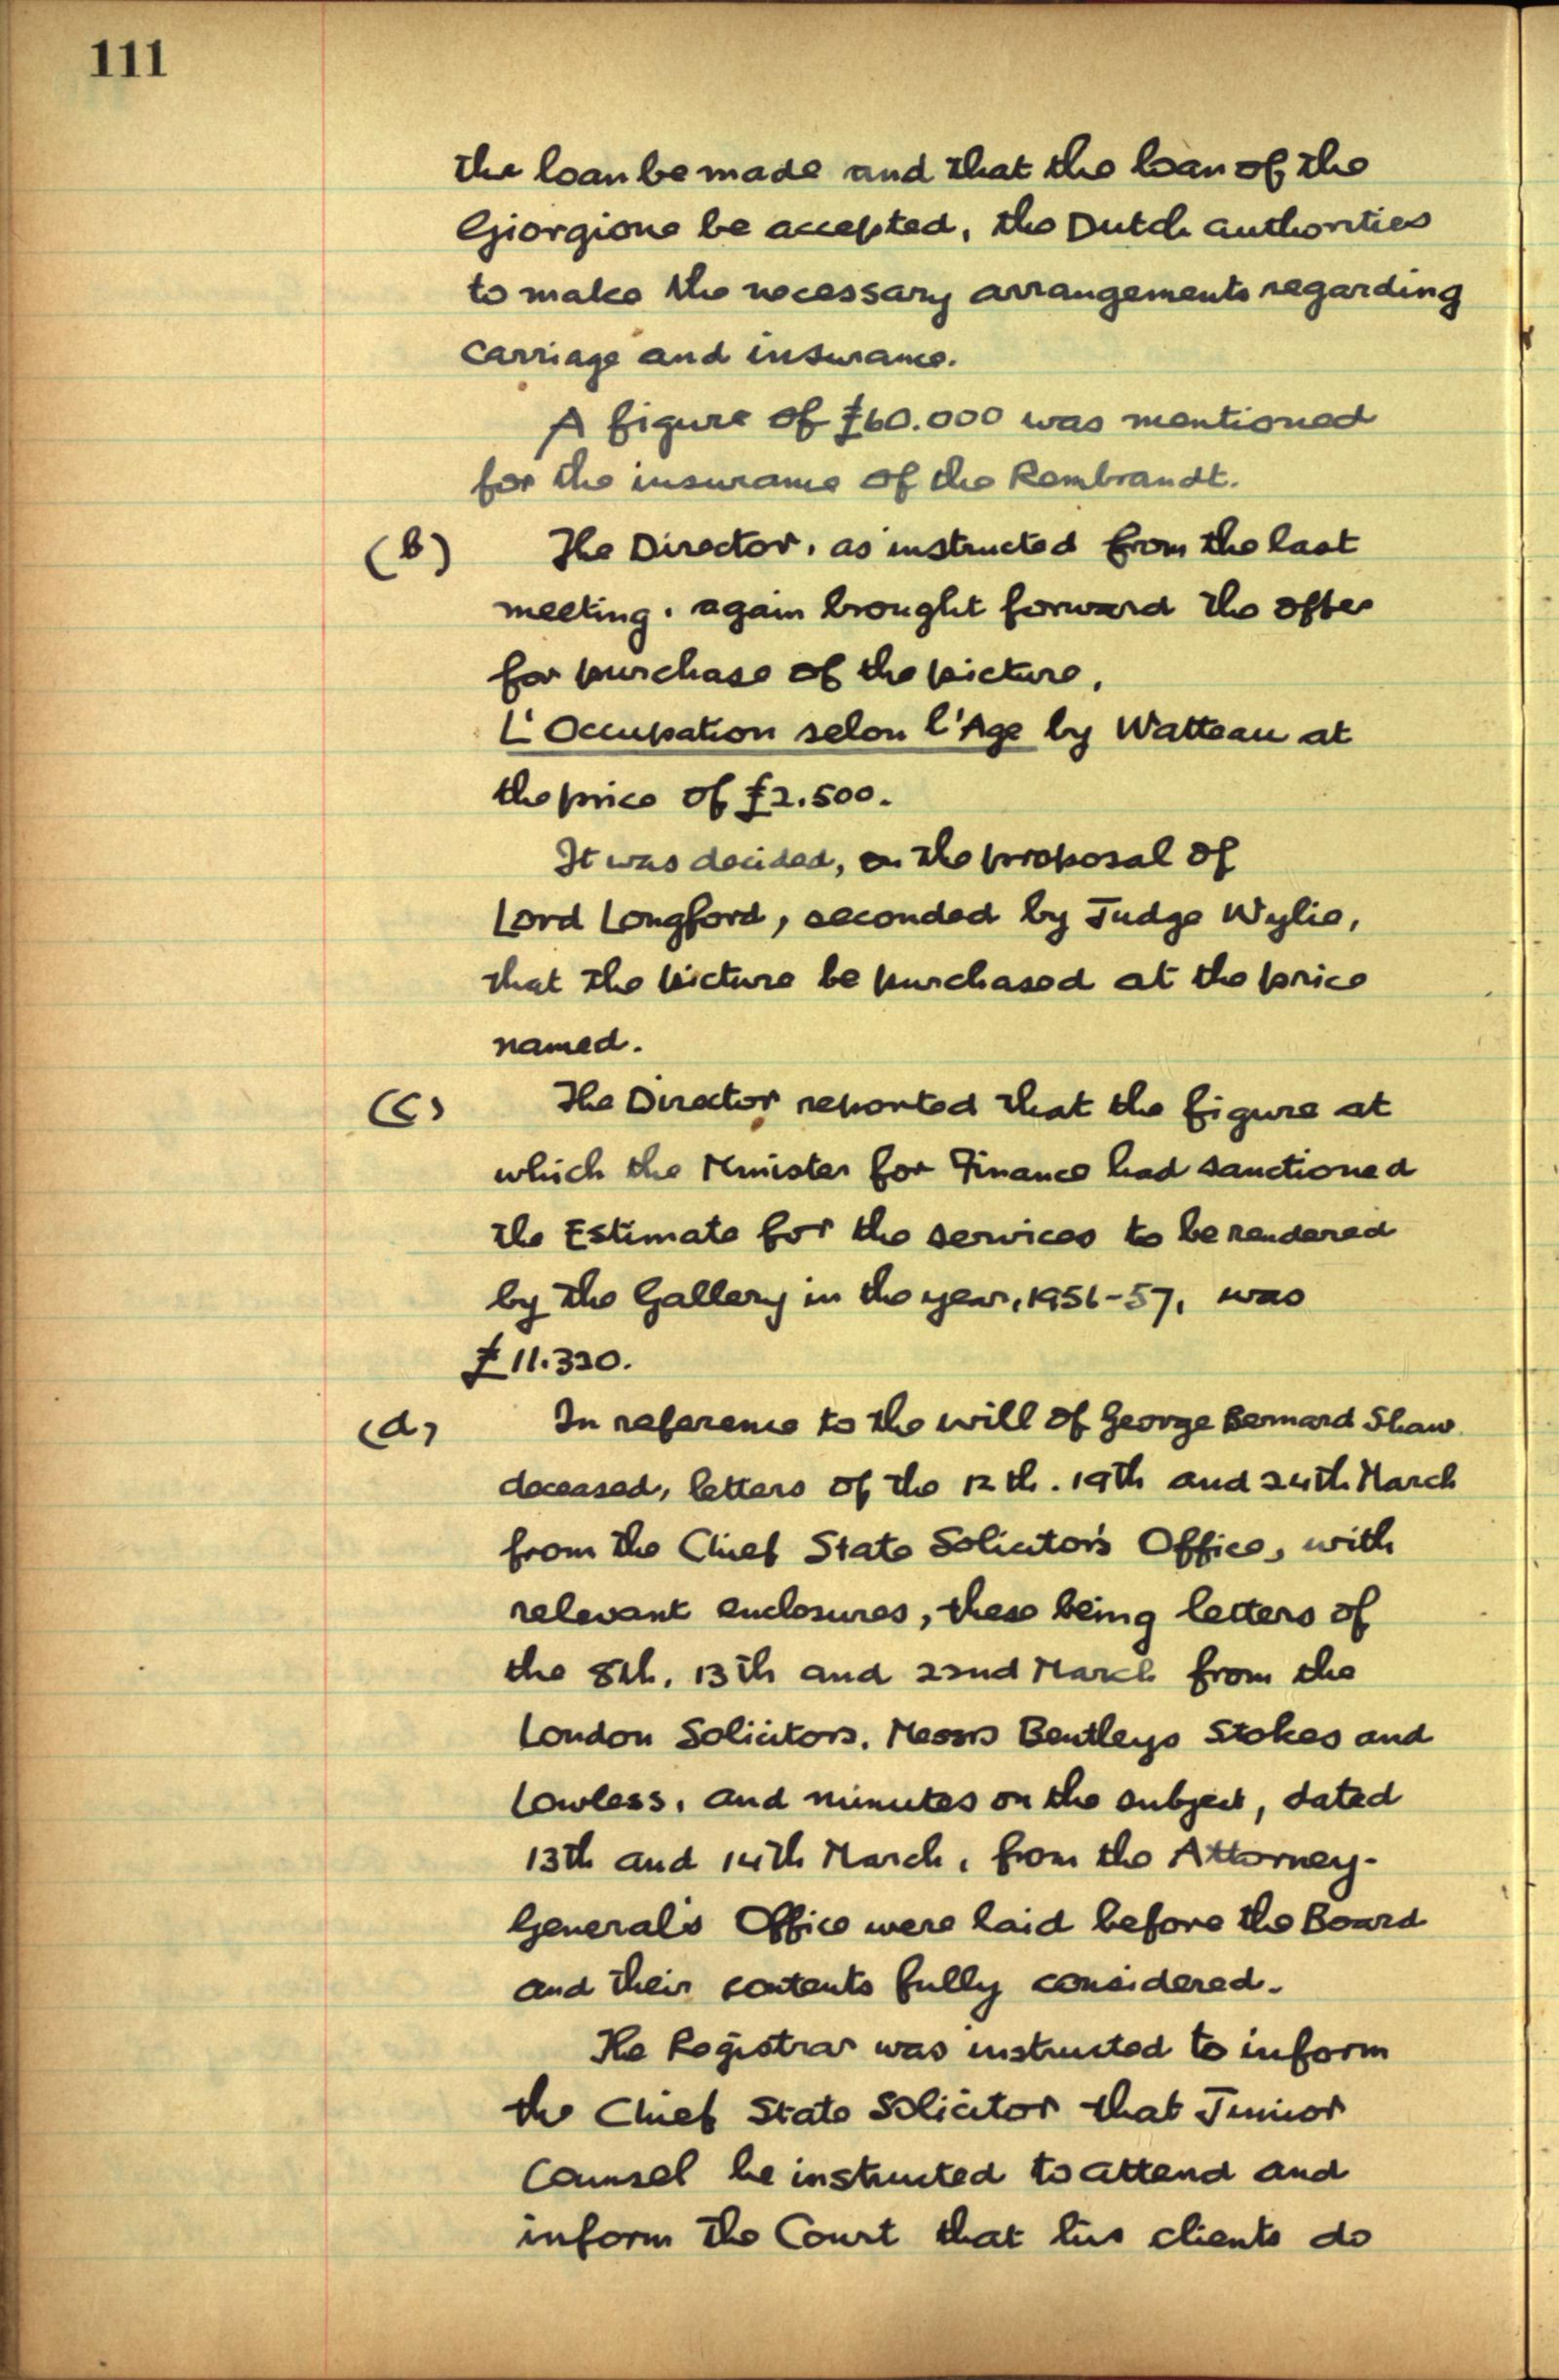 111
the loan be made and that the loan of the
Giorgione be accepted, the Dutch authorities
to make the necessary arrangements regarding
carriage and insurance.
A figure of £60.000 was mentioned
for the insurance of the Rembrandt.
(b) The Director, as instructed from the last
meeting, again brought forward the offer
for purchase of the picture,
L'Occupation selon l'Age by Watteau at
the price of £2.500.
It was decided, on the proposal of
Lord Longford, seconded by Judge Wylie,
that the picture be purchased at the price
named.
(c) The Director reported that the figure at
which the Minister for Finance had sanctioned
the Estimate for the services to be rendered
by the Gallery in the year, 1956-57, was
£11.320.
(d) In reference to the will of George Bernard Shaw
deceased, letters of the 12th. 19th and 24th March
from the Chief State Solicitor's Office, with
relevant enclosures, these being letters of
the 8th, 13th and 22nd March from the
London Solicitors, Messrs Bentleys Stokes and
Lowless, and minutes on the subject, dated
13th and 14th March, from the Attorney-
General's Office were laid before the Board
and their contents fully considered.
The Registrar was instructed to inform
the Chief State Solicitor that Junior
Counsel be instructed to attend and
inform the Court that his clients do